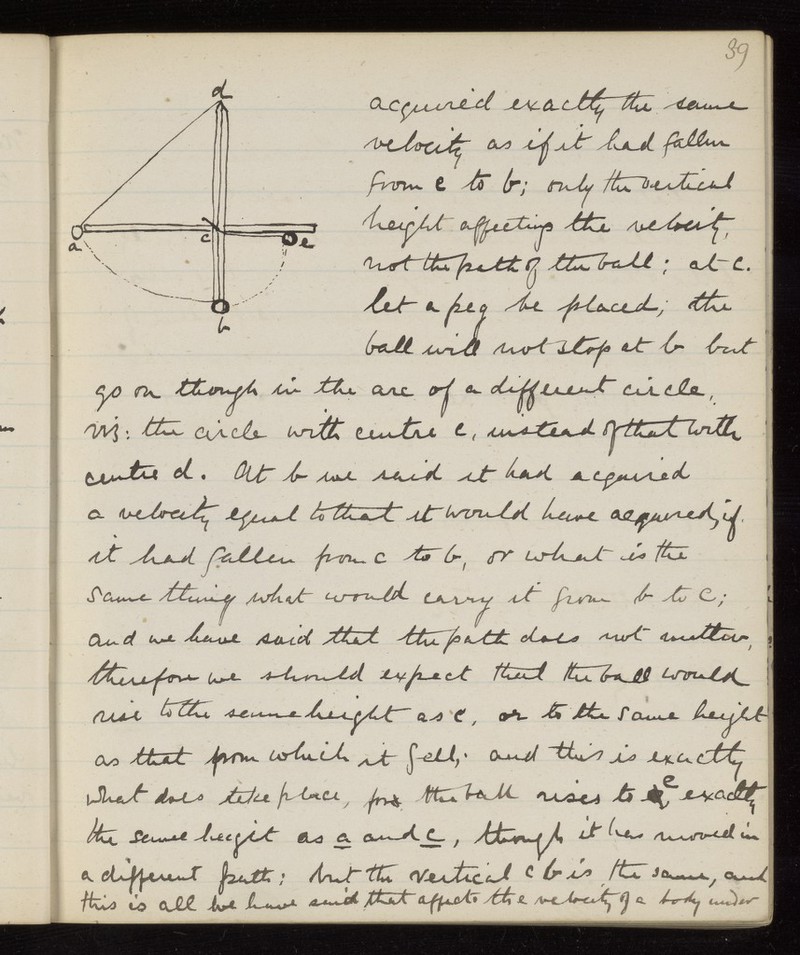 39
d
a
c
e
b
acquired exactly the same
velocity as if it had fallen
from c to b; only the vertical
height affecting the velocity,
not the path of the ball; at c.
let a peg be placed; the
ball will not stop at b but
go on though in the arc of a different circle,
viz: the circle with centre c, instead of that with
centre d. At b we said it had acquired
a velocity equal to that it would have acquired, if
it had fallen from c to b, or what is the
same thing what would carry it from b to c;
and we have said that the path does not matter,
therefore we should expect that the ball would
rise to the same height as c, or to the same height
as that from which it fell; and this is exactly
what does take place, for the ball rises to e, exactly
the same heigit as a and c, though it has moved in
a different path; but the vertical c b is the same, and
this is all we have said that affects the velocity of a body under